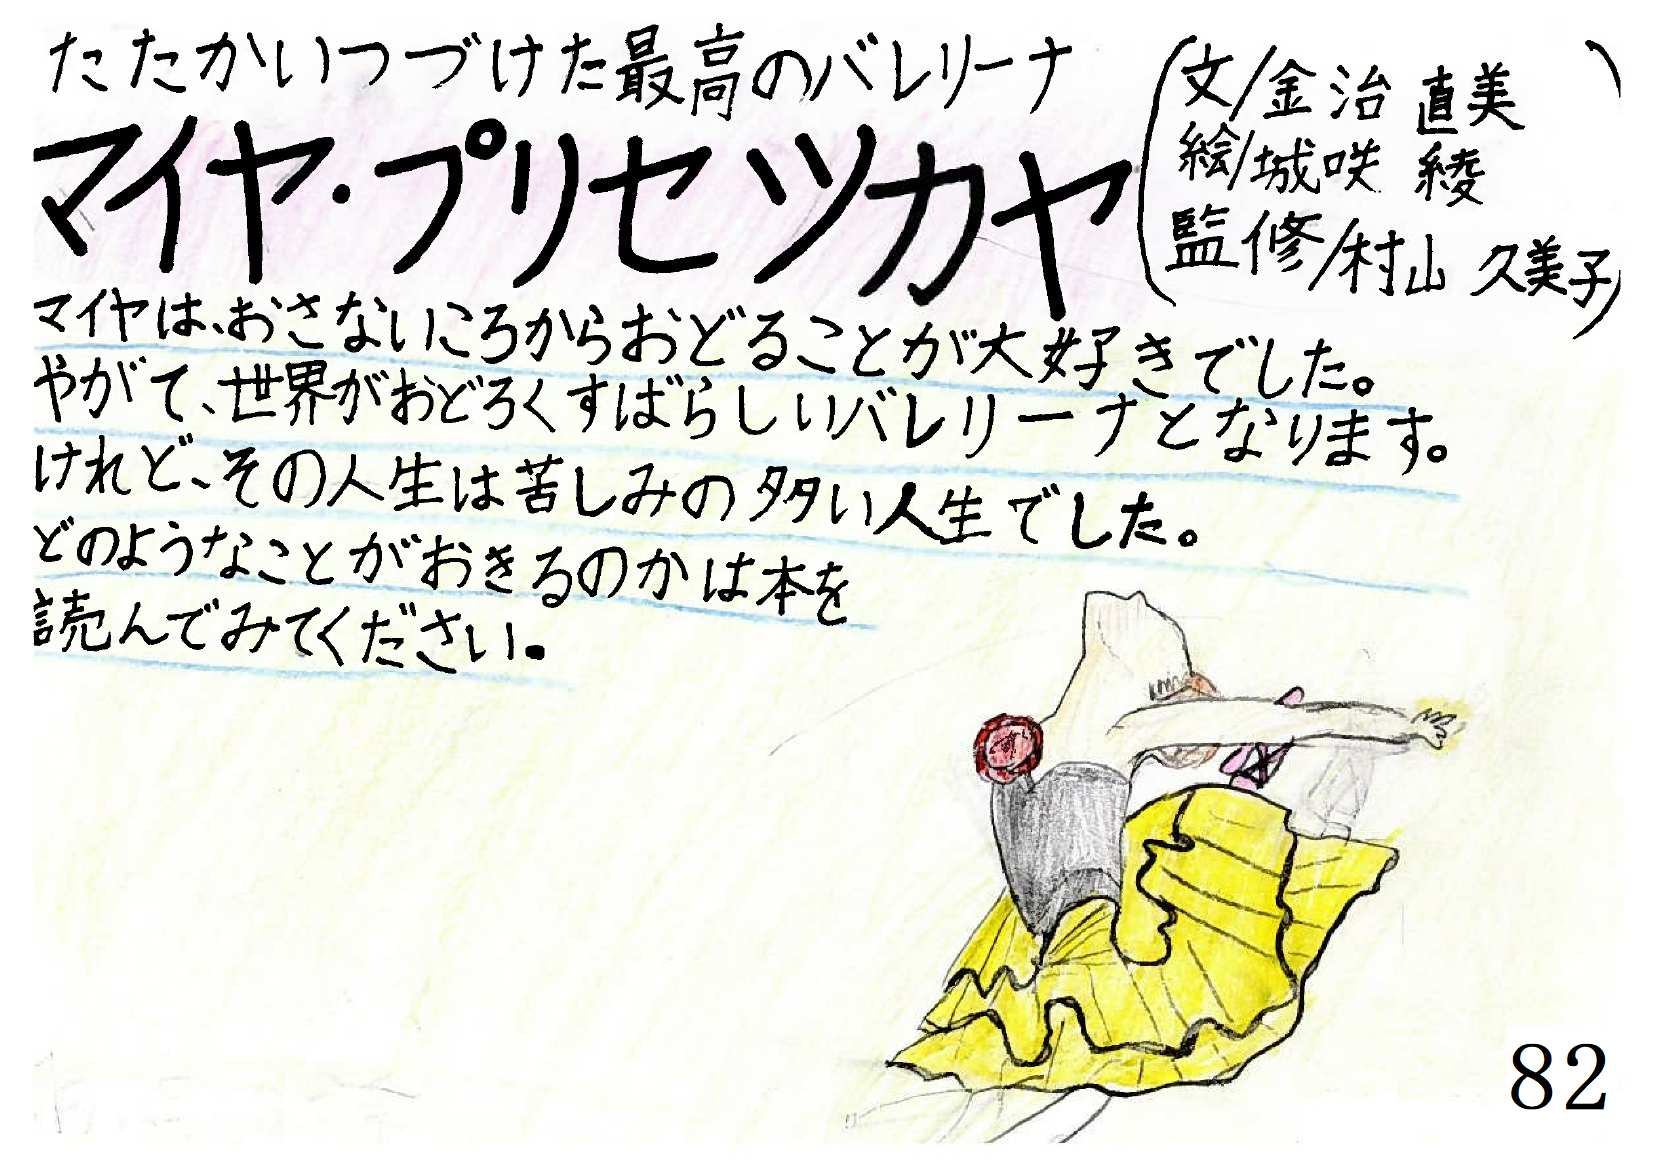 たたかいつづけた最高のバレリーナ
マイヤ・プリセツカヤ
(文/金治 直美
絵/城咲 綾
監修/村山 久美子)
マイヤは、おさないころからおどることが大好きでした。
やがて、世界がおどろくすばらしいバレリーナとなります。
けれど、その人生は苦しみの多い人生でした。
どのようなことがおきるのかは本を
読んでみてください。
82